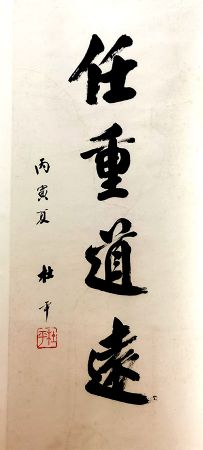 任重道遠
丙寅夏 杜平
杜平